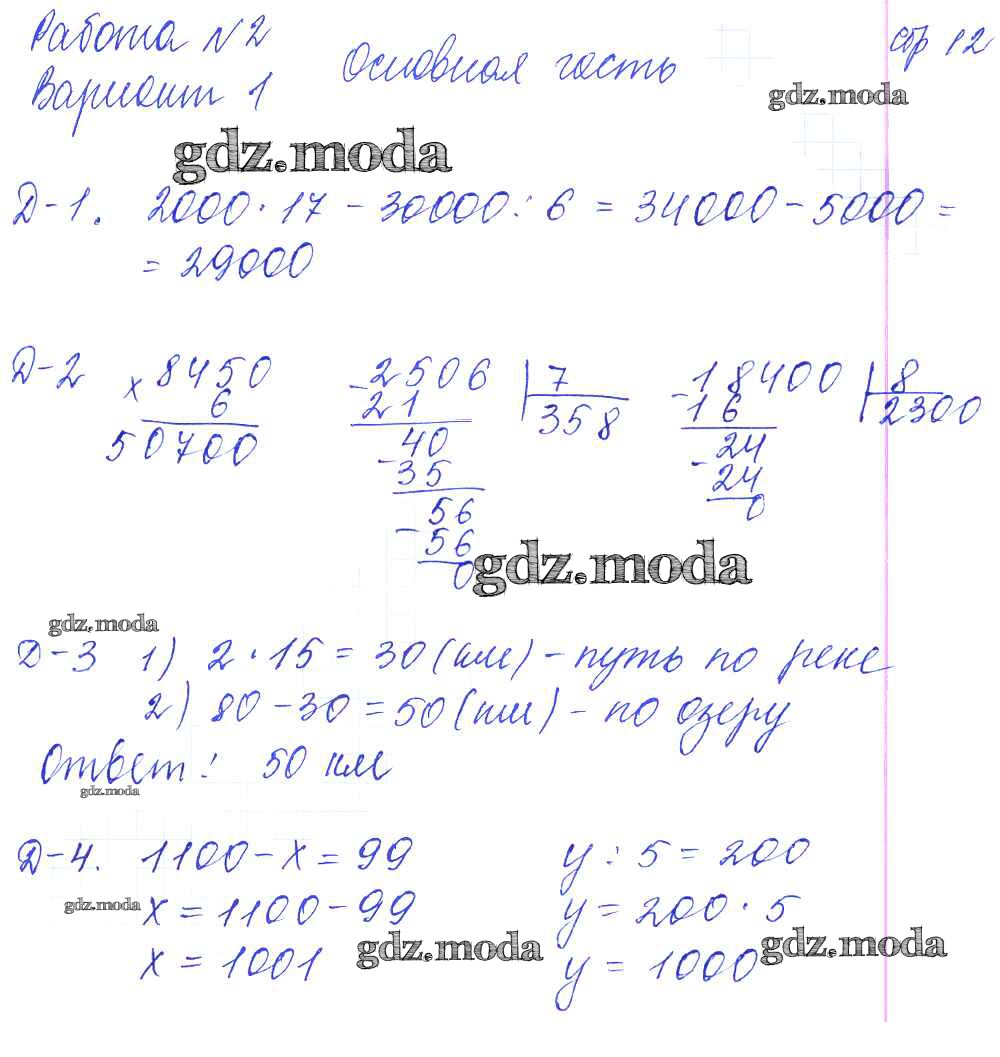 Работа №2
стр 12
Вариант 1
Основная часть
gdz.moda
gdz.moda
Д-1. 2000·17 - 30000:6 = 34000 - 5000 =
= 29000
Д-2 × 8450 - 2506 | 7 - 18400 | 8
6 21 358 16 2300
50700 40 24
- 35 - 24
56 0
- 56
0
gdz.moda
gdz.moda
Д-3 1) 2·15 = 30 (км) - путь по реке
2) 80 - 30 = 50 (км) - по озеру
Ответ: 50 км
gdz.moda
Д-4. 1100 - x = 99 y : 5 = 200
gdz.moda x = 1100 - 99 y = 200 · 5
x = 1001 gdz.moda y = 1000 gdz.moda